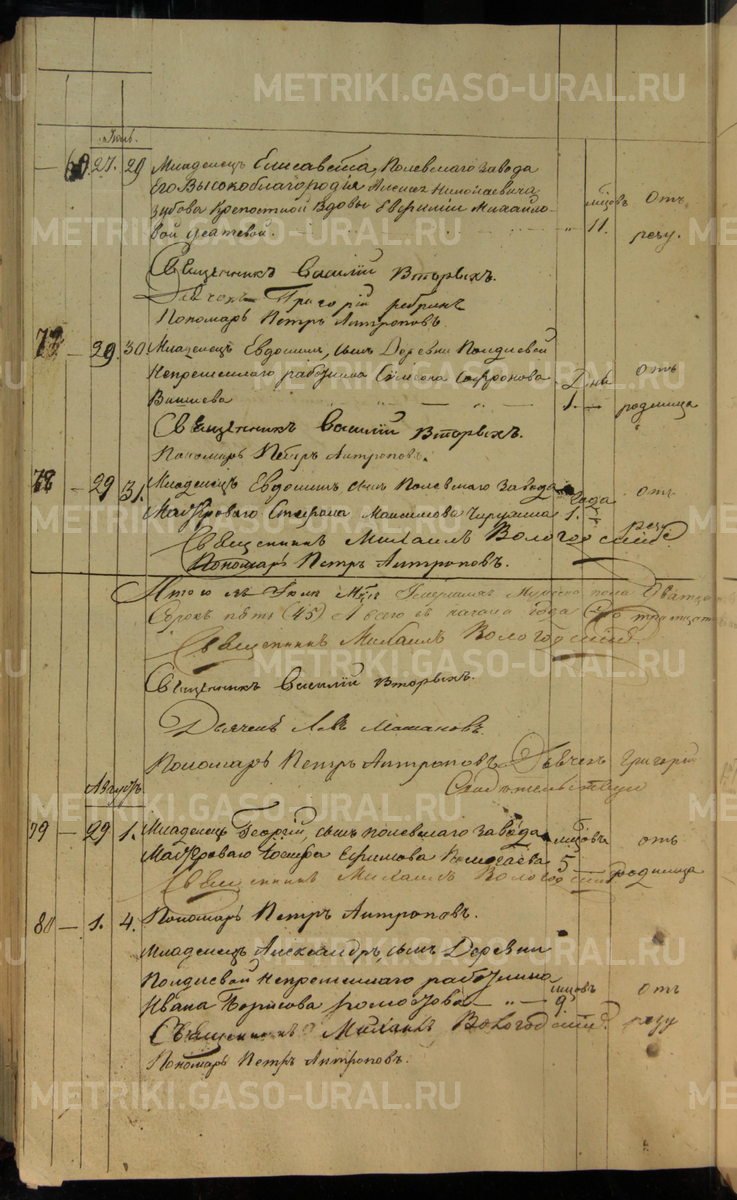 Июль
— 60. 27. 29 Младенецъ Елисавета, Полевскаго завода
Его Высокоблагородія Алексѣя Николаевича
Зубова Крепостной Вдовы Евфиміи Михайло- мѣсцовъ отъ
вой 11. резу.
Священникъ Василій Вторыхъ.
Григорій
Пономарь Петръ Антроповъ.
— 29. 30. Младенецъ Евдокимъ, сынъ Деревни Полдневой
Непременнаго работника Симеона Софронова Днь отъ
1. — родимца
Священникъ Василій Вторыхъ.
Пономарь Петръ Антроповъ.
78 — 29 31. Младенецъ Евдокимъ, сынъ Полевскаго завода года отъ
Мастероваго Максимова 1. резу
Священникъ Михаилъ Вологодскій.
Пономарь Петръ Антроповъ.
Итого въ Іюлѣ Мцѣ Умершихъ Мужеска пола Дватцать
Сорокъ пять (45) А всего съ начала года
Священникъ Михаилъ Вологодскій.
Священникъ Василій Вторыхъ.
Дьячекъ Левъ
Пономарь Петръ Антроповъ. Дьячекъ Григорій
Августъ
79 — 29 1. Младенецъ Георгій, сынъ Полевскаго завода мѣсцовъ отъ
Мастероваго Іосифа Ефимова 5 — родимца
Священникъ Михаилъ Вологодскій
80 — 1. 4. Пономарь Петръ Антроповъ.
Младенецъ Александръ, сынъ Деревни
Полдневой Непременнаго работника
Ивана Борисова — „ — мѣсцовъ 9. отъ
Священникъ Михаилъ Вологодскій. резу
Пономарь Петръ Антроповъ.
METRIKI.GASO-URAL.RU